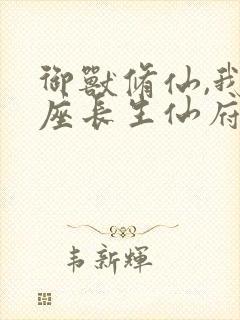 御獸脩仙,我
座長生仙府
韦新輝